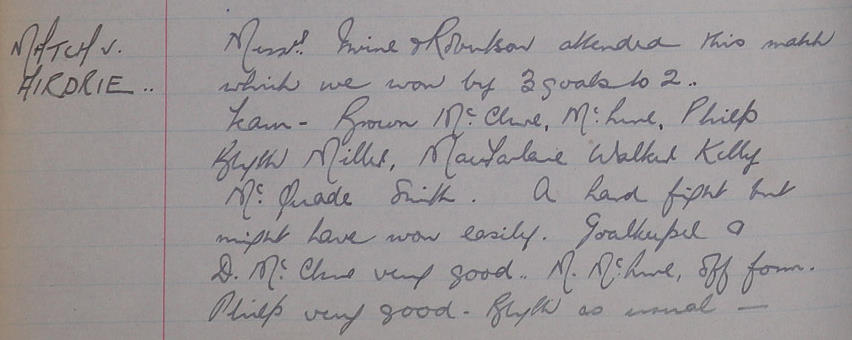 MATCH v.
AIRDRIE ..
Messrs. Irvine & Robertson attended this match
which we won by 3 goals to 2 ..
Team - Brown McClure, McLure, Philip
Blyth Miller, MacFarlane Walker Kelly
McQuade Smith. A hard fight but
might have won easily. Goalkeeper &
D. McClure very good .. M. McLure, off form.
Philip very good - Blyth as usual —